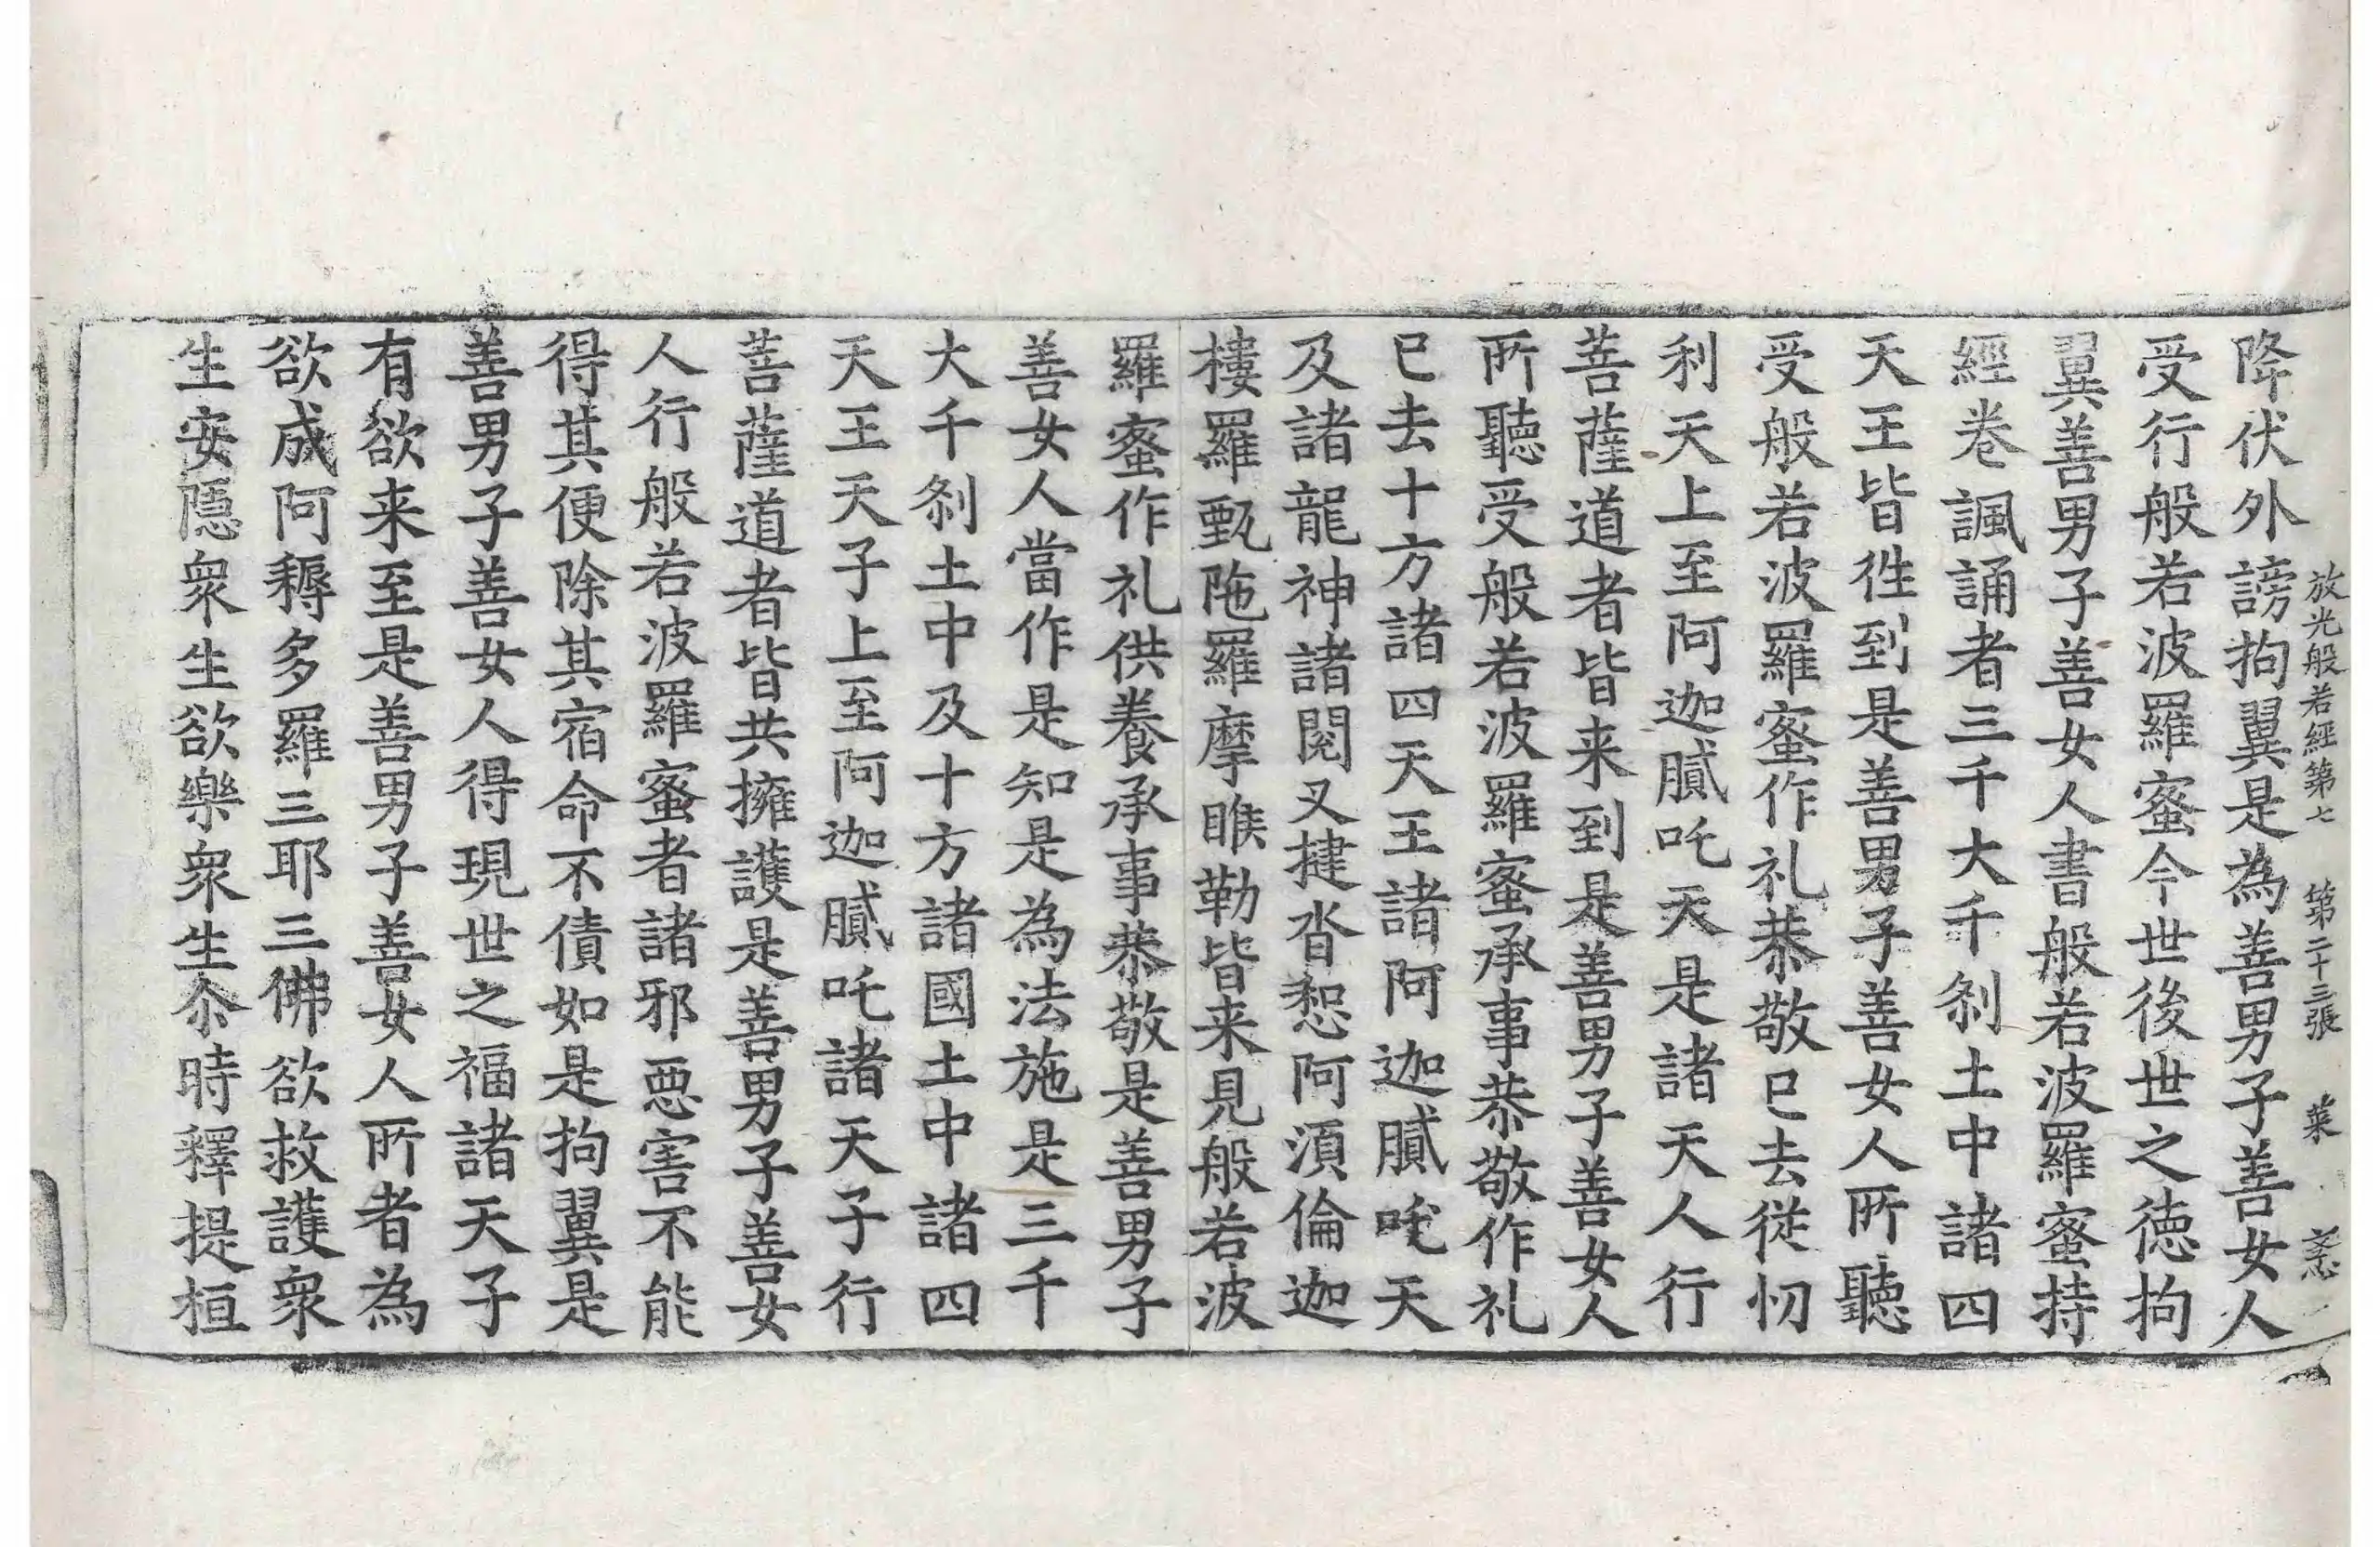 放光般若經第七 第二十三張 菜 
降伏外謗拘翼是為善男子善女人
受行般若波羅蜜今世後世之德拘
翼善男子善女人書般若波羅蜜持
經卷諷誦者三千大千剎土中諸四
天王皆徃到是善男子善女人所聽
受般若波羅蜜作礼恭敬已去從忉
利天上至阿迦膩吒天是諸天人行
菩薩道者皆来到是善男子善女人
所聽受般若波羅蜜承事恭敬作礼
已去十方諸四天王諸阿迦膩吒天
及諸龍神諸閱叉揵沓惒阿湏倫迦
樓羅甄陁羅摩睺勒皆来見般若波
羅蜜作礼供養承事恭敬是善男子
善女人當作是知是為法施是三千
大千剎土中及十方諸國土中諸四
天王天子上至阿迦膩吒諸天子行
菩薩道者皆共擁護是善男子善女
人行般若波羅蜜者諸邪惡害不能
得其便除其宿命不債如是拘翼是
善男子善女人得現世之福諸天子
有欲来至是善男子善女人所者為
欲成阿耨多羅三耶三佛欲救護衆
生安隱衆生欲樂衆生尒時釋提桓